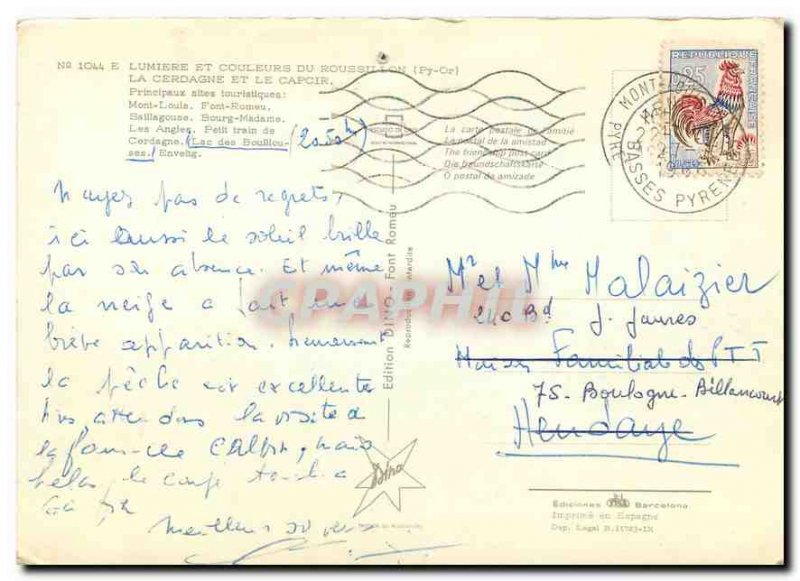 Nº 1044 E LUMIERE ET COULEURS DU ROUSSILLON (Py-Or)
LA CERDAGNE ET LE CAPCIR.
Principaux sites touristiques:
Mont-Louis. Font-Romeu.
Saillagouse. Bourg-Madame.
Les Angles. Petit train de
Cerdagne. Lac des Bouillou-
ses. Enveitg.
La carte postale de l'amitié
La postal de la amistad
The friendship post carte
Die freundschaftskarte
O postal da amizade
REPUBLIQUE FRANÇAISE
0,25
BASSES PYRENEES
N'ayez pas de regrets,
ici aussi le soleil brille
par son absence. Et même
la neige a fait une
brève apparition. Heureusement
la pêche est excellente
Nous avons la visite de
la famille, mais
hélas le temps
Meilleurs souvenirs
Edition DINO - Font Romeu
Reproduction interdite
CPAPHIL
Mr et Mme Malaizier
210 Bd J. Jaures
Maison Familiale des PTT
75. Boulogne-Billancourt
Hendaye
Dino
Ediciones Barcelona
Imprimé en Espagne
Dep. Legal B.